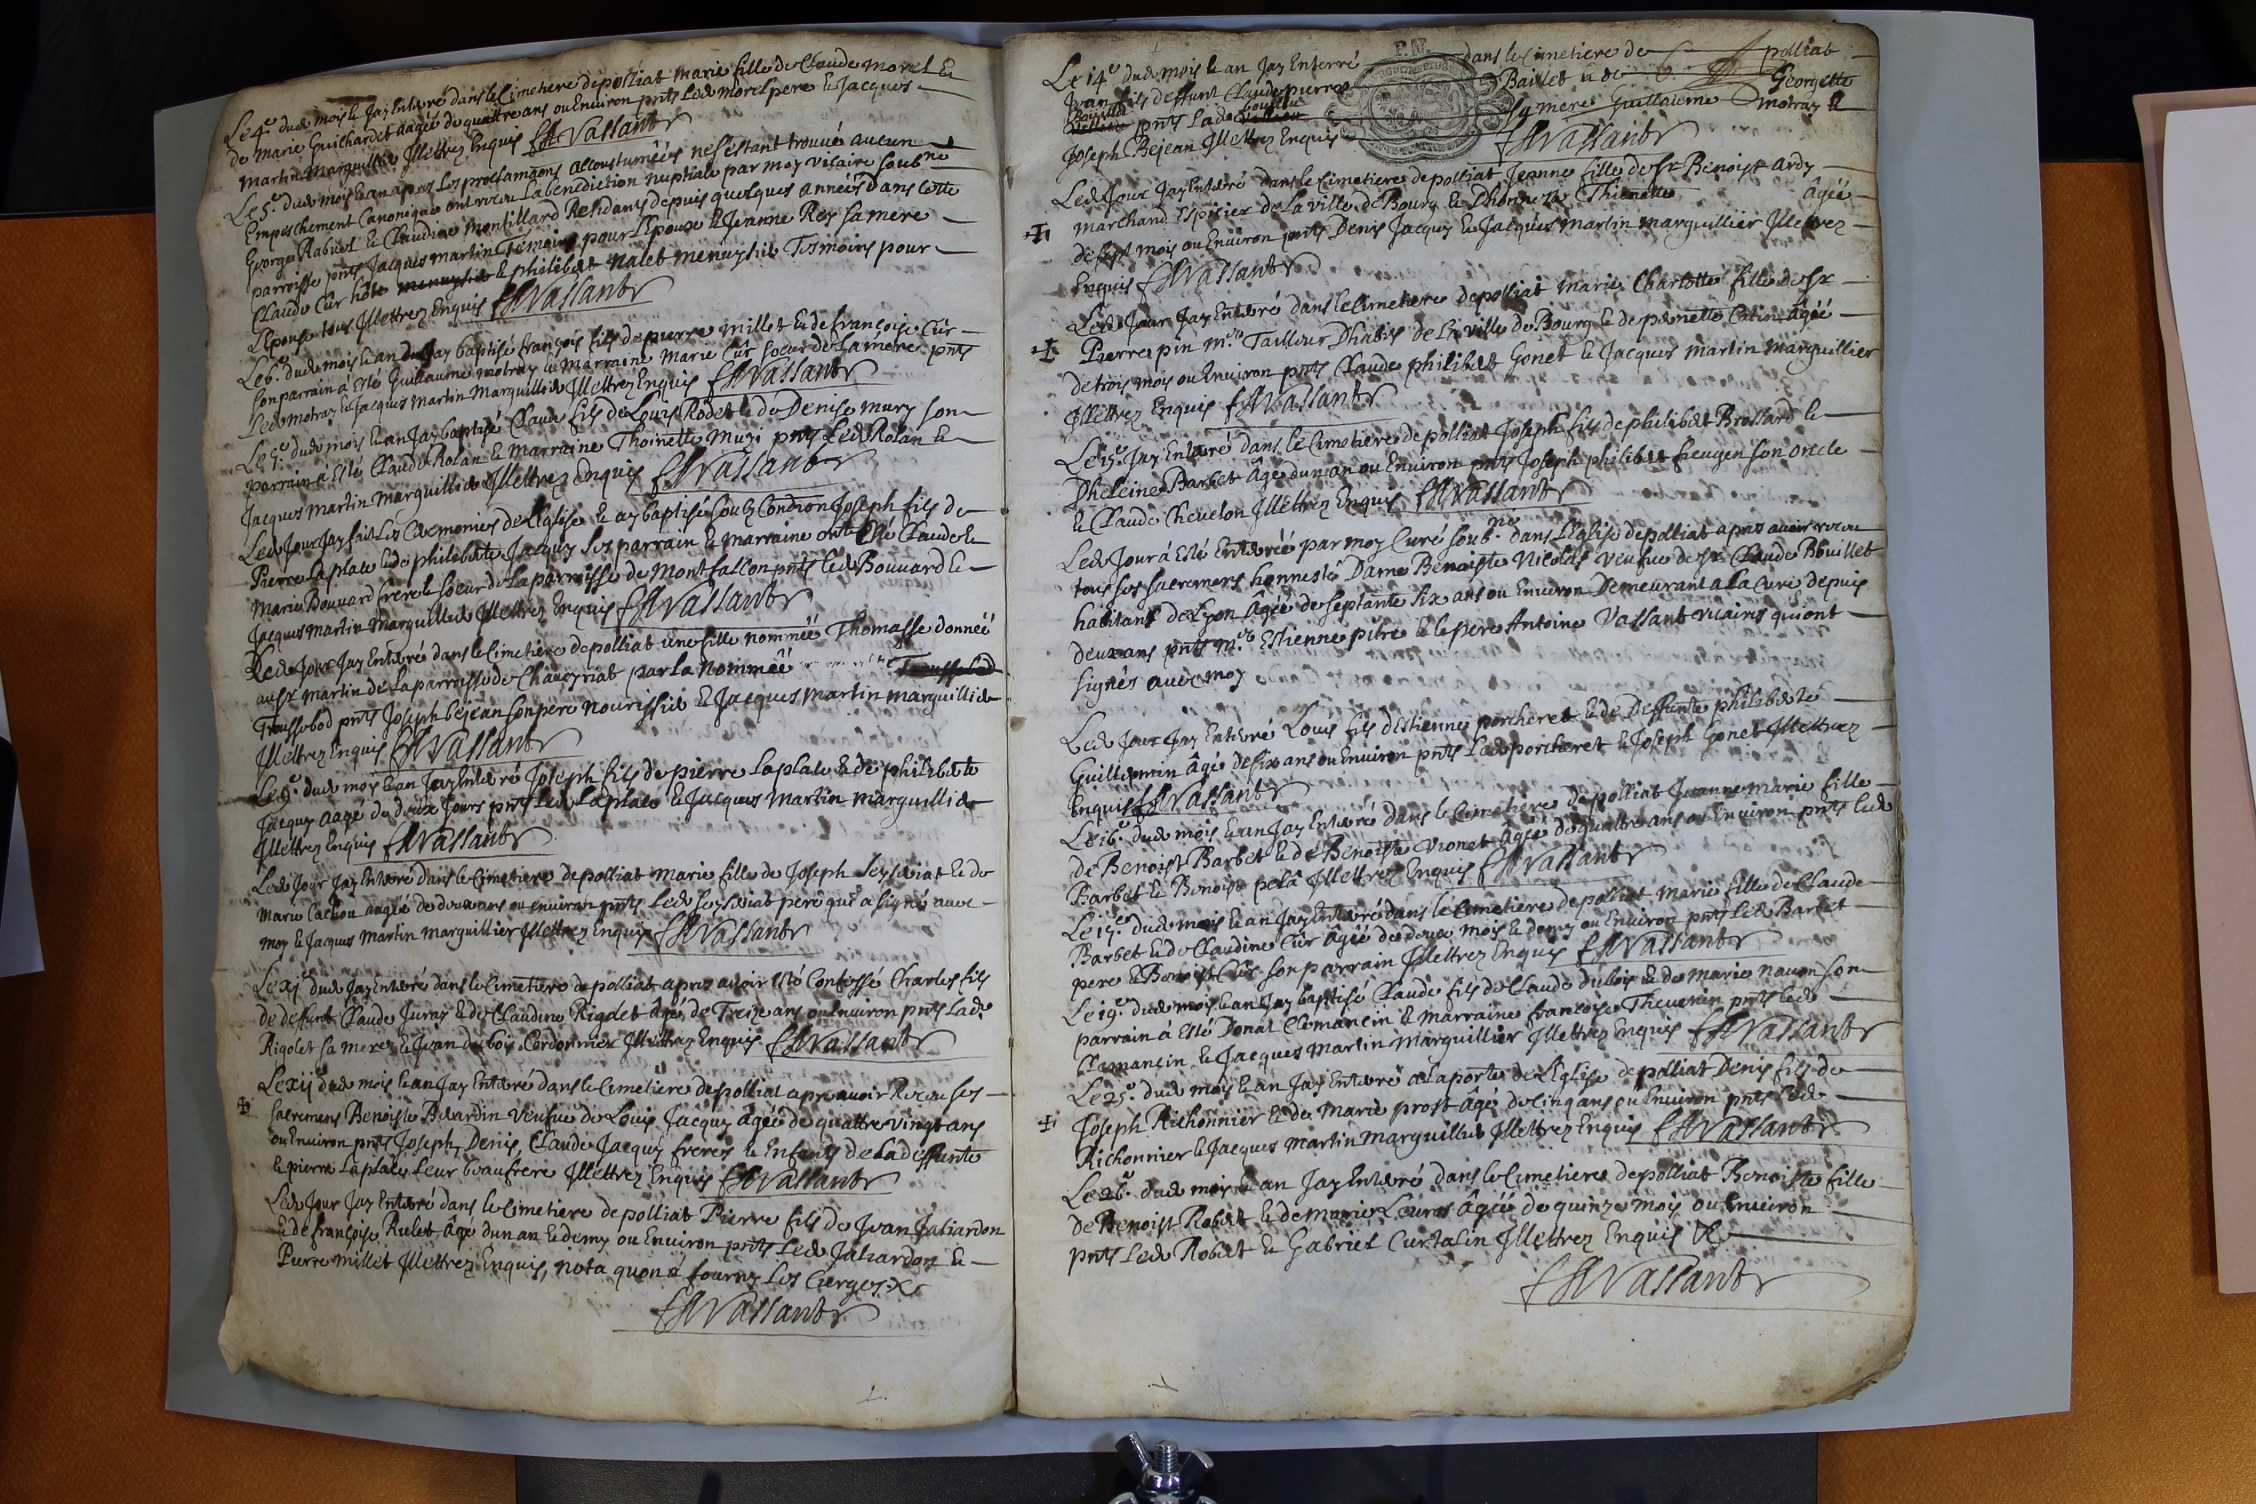 Le 4e dud mois Je Jay Enterré dans le Cimetiere de polliat Marie fille de Claude morel &
de Marie Guichardet aagée de quattre ans ou Environ pnts Led morel pere & Jacques
Martin Marguillier Jllettrez Enquis fAVassant
Le 5e dud mois & an apres Les proclamaons accoustumëés ne sestant trouvé aucun
Empeschement Canonique ont receu La benediction nuptiale par moy vicaire soubne
George Rabuel & Claudine Montillard Residans depuis quelques annéés dans cette
parroisse pnts Jacques martin Témoins pour Lepouze & Jeanne Rey sa mere
Claude Cûr hôte & philibert nalet menuysier Tesmoins pour
Lepouse tous Jllettrez Enquis fAVassant
Le 6e dud mois & an Jay baptisé françois fils de pierre millet & de françoise Cûr
son parrain á esté Guillaume motray & Marraine Marie Cûr soeur de La mere pnts
Led motray & Jacques Martin Marguillier Jllettrez Enquis fAVassant
Le 7e dud mois & an Jay baptisé Claude fils de Louis Rodet & de Denise mury son
parrain á Esté Claude Rolan & marraine Thoinette Muzi pnts Led Rolan &
Jacques Martin Marguillier Jllettrez Enquis fAVassant
Led Jour Jay fait Les Ceremonies de L'Eglise & ay baptisé soubz Condion Joseph fils de
Pierre Laplace & de philiberte Jacquy ses parrain & marraine ont Esté Claude &
Marie Bouvard frere & soeur de La parroisse de Montfalcon pnts led Bouvard &
Jacques martin Marguillier Jllettrez Enquis fAVassant
Led Jour Jay Enterré dans le Cimetiere de polliat une fille nommëé Thomasse donnëé
au sr martin de La parroisse de Chaveyriat par la nommëé
Troussebod pnts Joseph bejean son pere nourissier & Jacques Martin marguillier
Jllettrez Enquis fAVassant
Le 9e dud mois & an Jay Enterré Joseph fils de pierre Laplace & de philiberte
Jacquy aagé de deux Jours pnts Led Laplace & Jacques Martin Marguillier
Jllettrez Enquis fAVassant
Led Jour Jay Enterré dans le Cimetiere de polliat Marie fille de Joseph & de
Marie Cachou aagéé de deux ans ou Environ pnts Led pere qui a signé avec
moy & Jacques Martin Marguillier Jllettrez Enquis fAVassant
Le xj dud Jay Enterré dans le Cimetiere de polliat apres avoir Esté Confessé Charles fils
de deffunt Claude Juray & de Claudine Rigolet âgé de Treize ans ou Environ pnts Lade
Rigolet sa mere & Jean dubois Cordonnier Jllettrez Enquis fAVassant
Le xije dud mois & an Jay Enterré dans le Cimetiere de polliat apres avoir Receu ses
sacremens Benoiste Berardin veufue de Louis Jacquy âgéé de quattre vingt ans
ou Environ pnts Joseph, Denis, Claude Jacquy freres & Enfants de La deffunte
& pierre Laplace Leur beaufrere Jllettrez Enquis fAVassant
Led Jour Jay Enterré dans le Cimetiere de polliat Pierre fils de Jean Jaliardon
& de françoise Rulet âgé dun an & demy ou Environ pnts Led Jaliardon &
Pierre millet Jllettrez Enquis, nota quon á fourny Les Cierges
fAVassant
Le 14e dud mois & an Jay Enterré dans le Cimetiere de polliat
Jean fils deffunt Claude pierre Baillet & de Georgette
pnts Lade sa mere Guillaume motray &
Joseph Bejean Jllettrez Enquis fAVassant
Led Jour Jay Enterré dans le Cimetiere de polliat Jeanne fille de sr Benoist Ardy
marchand Espicier de La ville de Bourg & Dhonneste Thienette âgéé
de sept mois ou Environ pnts Denis Jacquy & Jacques Martin Marguillier Jllettrez
Enquis fAVassant
Led Jour Jay Enterré dans le Cimetiere de polliat Marie Charlotte fille de sr
Pierre pin me Tailleur Dhabis de La ville de Bourg & de pernette Catin âgéé
de trois mois ou Environ pnts Claude philibert Gonet & Jacques Martin Marguillier
Jllettrez Enquis fAVassant
Le 15e Jay Enterré dans le Cimetiere de polliat Joseph fils de philibert Brossard &
Dheleine Barbet âgé dun an ou Environ pnts Joseph philibert son oncle
& Claude Chevelon Jllettrez Enquis fAVassant
Led Jour á Esté Enterréé par moy Curé soub.né dans L'Eglise de polliat apres avoir receu
tous ses sacremens honneste Dame Benoiste Nicolas veufue de sr Claude Bouillet
habitant de Lyon âgéé de septante six ans ou Environ Demeurant a La Cure depuis
deux ans pnts mre Estienne pitre & le pere Antoine Vassant vicaires qui ont
signés avec moy
Led Jour Jay Enterré Louis fils dEstienne porcheret & de Deffunte philiberte
Guillermin âgé de six ans ou Environ pnts Led porcheret & Joseph Gonet Jllettrez
Enquis fAVassant
Le 16e dud mois & an Jay Enterré dans le Cimetiere de polliat Jeanne Marie fille
de Benoist Barbet & de Benoiste Vionet âgéé de quattre ans ou Environ pnts Led
Barbet & Benoist pelâ Jllettrez Enquis fAVassant
Le 17e dud mois & an Jay Enterré dans le Cimetiere de polliat Marie fille de Claude
Barbet & de Claudine Cûr âgéé de deux mois & demy ou Environ pnts Led Barbet
pere & Benoist Cûr son parrain Jllettrez Enquis fAVassant
Le 19e dud mois & an Jay baptisé Claude fils de Claude dubois & de Marie navon son
parrain á Esté Donat Clemancin & marraine francoise Thevenin pnts led
Clamancin & Jacques Martin Marguillier Jllettrez Enquis fAVassant
Le 25e dud mois & an Jay Enterré a La porte de L'Eglise de polliat Denis fils de
Joseph Richonnier & de Marie prost âgé de Cinq ans ou Environ pnts Led
Richonnier & Jacques Martin Marguillier Jllettrez Enquis fAVassant
Le 26e dud mois & an Jay Enterré dans le Cimetiere de polliat Benoiste fille
de Benoist Robert & de Marie Louras âgéé de quinze mois ou Environ
pnts Led Robert & Gabriel Curtalin Jllettrez Enquis
fAVassant